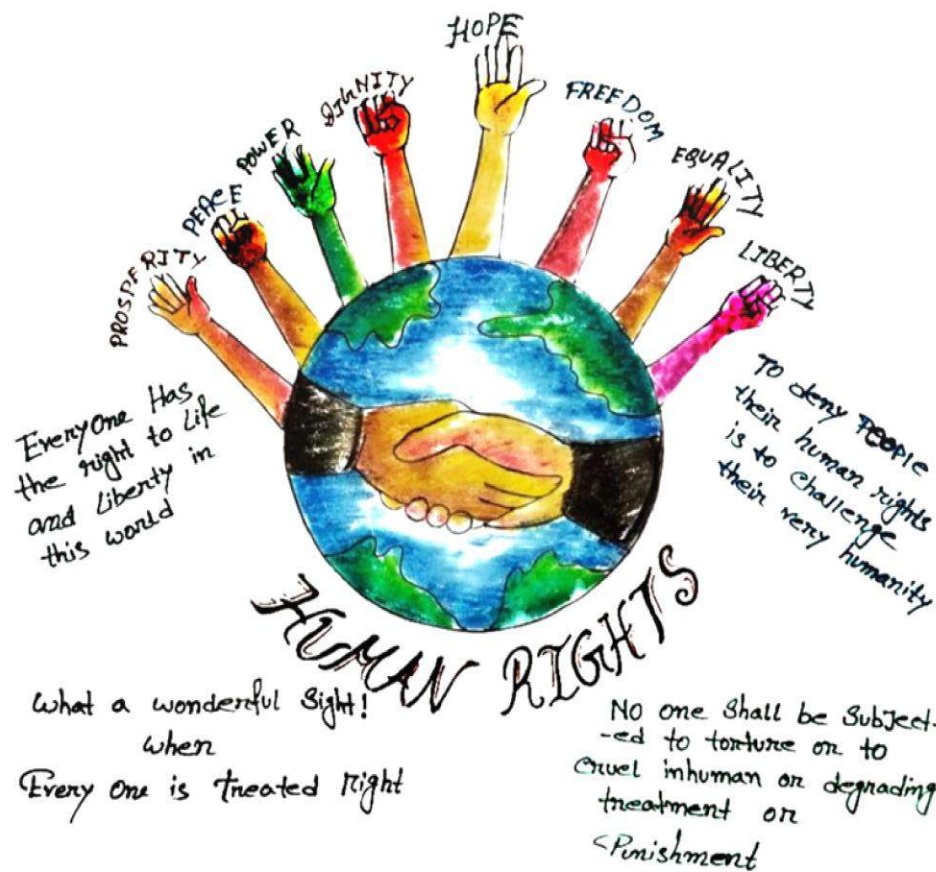 PROSPERITY
PEACE
POWER
DIGNITY
HOPE
FREEDOM
EQUALITY
LIBERTY
EveryOne Has
the right to Life
and Liberty in
this world
To deny PEOPLE
their human rights
is to challenge
their very humanity
HUMAN RIGHTS
What a wonderful Sight!
when
Every One is treated Right
No one Shall be Subject-
-ed to torture or to
cruel inhuman or degrading
treatment or
Punishment